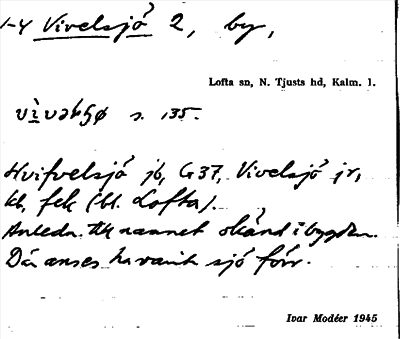 1-4 Vivelsjö 2, by,
Lofta sn, N. Tjusts hd, Kalm. l.
s. 135.
Hvifvelsjö jb, G37, Vivelsjö jr,
kb, fek (bl. Lofta).
Anledn. till namnet okänd i bygden.
Där anses ha varit sjö förr.
Ivar Modéer 1945